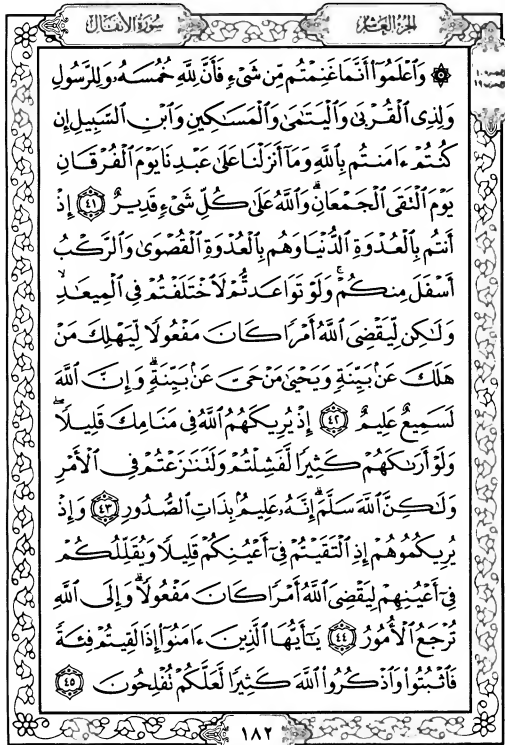 الجزء العاشر
سورة الأنفال
۞ وَٱعْلَمُوٓا۟ أَنَّمَا غَنِمْتُم مِّن شَىْءٍ فَأَنَّ لِلَّهِ خُمُسَهُۥ وَلِلرَّسُولِ
وَلِذِى ٱلْقُرْبَىٰ وَٱلْيَتَـٰمَىٰ وَٱلْمَسَـٰكِينِ وَٱبْنِ ٱلسَّبِيلِ إِن
كُنتُمْ ءَامَنتُم بِٱللَّهِ وَمَآ أَنزَلْنَا عَلَىٰ عَبْدِنَا يَوْمَ ٱلْفُرْقَانِ
يَوْمَ ٱلْتَقَى ٱلْجَمْعَانِ ۗ وَٱللَّهُ عَلَىٰ كُلِّ شَىْءٍ قَدِيرٌ ٤١ إِذْ
أَنتُم بِٱلْعُدْوَةِ ٱلدُّنْيَا وَهُم بِٱلْعُدْوَةِ ٱلْقُصْوَىٰ وَٱلرَّكْبُ
أَسْفَلَ مِنكُمْ ۚ وَلَوْ تَوَاعَدتُّمْ لَٱخْتَلَفْتُمْ فِى ٱلْمِيعَـٰدِ ۙ
وَلَـٰكِن لِّيَقْضِىَ ٱللَّهُ أَمْرًا كَانَ مَفْعُولًا لِّيَهْلِكَ مَنْ
هَلَكَ عَنۢ بَيِّنَةٍ وَيَحْيَىٰ مَنْ حَىَّ عَنۢ بَيِّنَةٍ ۗ وَإِنَّ ٱللَّهَ
لَسَمِيعٌ عَلِيمٌ ٤٢ إِذْ يُرِيكَهُمُ ٱللَّهُ فِى مَنَامِكَ قَلِيلًا ۖ
وَلَوْ أَرَىٰكَهُمْ كَثِيرًا لَّفَشِلْتُمْ وَلَتَنَـٰزَعْتُمْ فِى ٱلْأَمْرِ
وَلَـٰكِنَّ ٱللَّهَ سَلَّمَ ۗ إِنَّهُۥ عَلِيمٌۢ بِذَاتِ ٱلصُّدُورِ ٤٣ وَإِذْ
يُرِيكُمُوهُمْ إِذِ ٱلْتَقَيْتُمْ فِىٓ أَعْيُنِكُمْ قَلِيلًا وَيُقَلِّلُكُمْ
فِىٓ أَعْيُنِهِمْ لِيَقْضِىَ ٱللَّهُ أَمْرًا كَانَ مَفْعُولًا ۗ وَإِلَى ٱللَّهِ
تُرْجَعُ ٱلْأُمُورُ ٤٤ يَـٰٓأَيُّهَا ٱلَّذِينَ ءَامَنُوٓا۟ إِذَا لَقِيتُمْ فِئَةً
فَٱثْبُتُوا۟ وَٱذْكُرُوا۟ ٱللَّهَ كَثِيرًا لَّعَلَّكُمْ تُفْلِحُونَ ٤٥
١٨٢